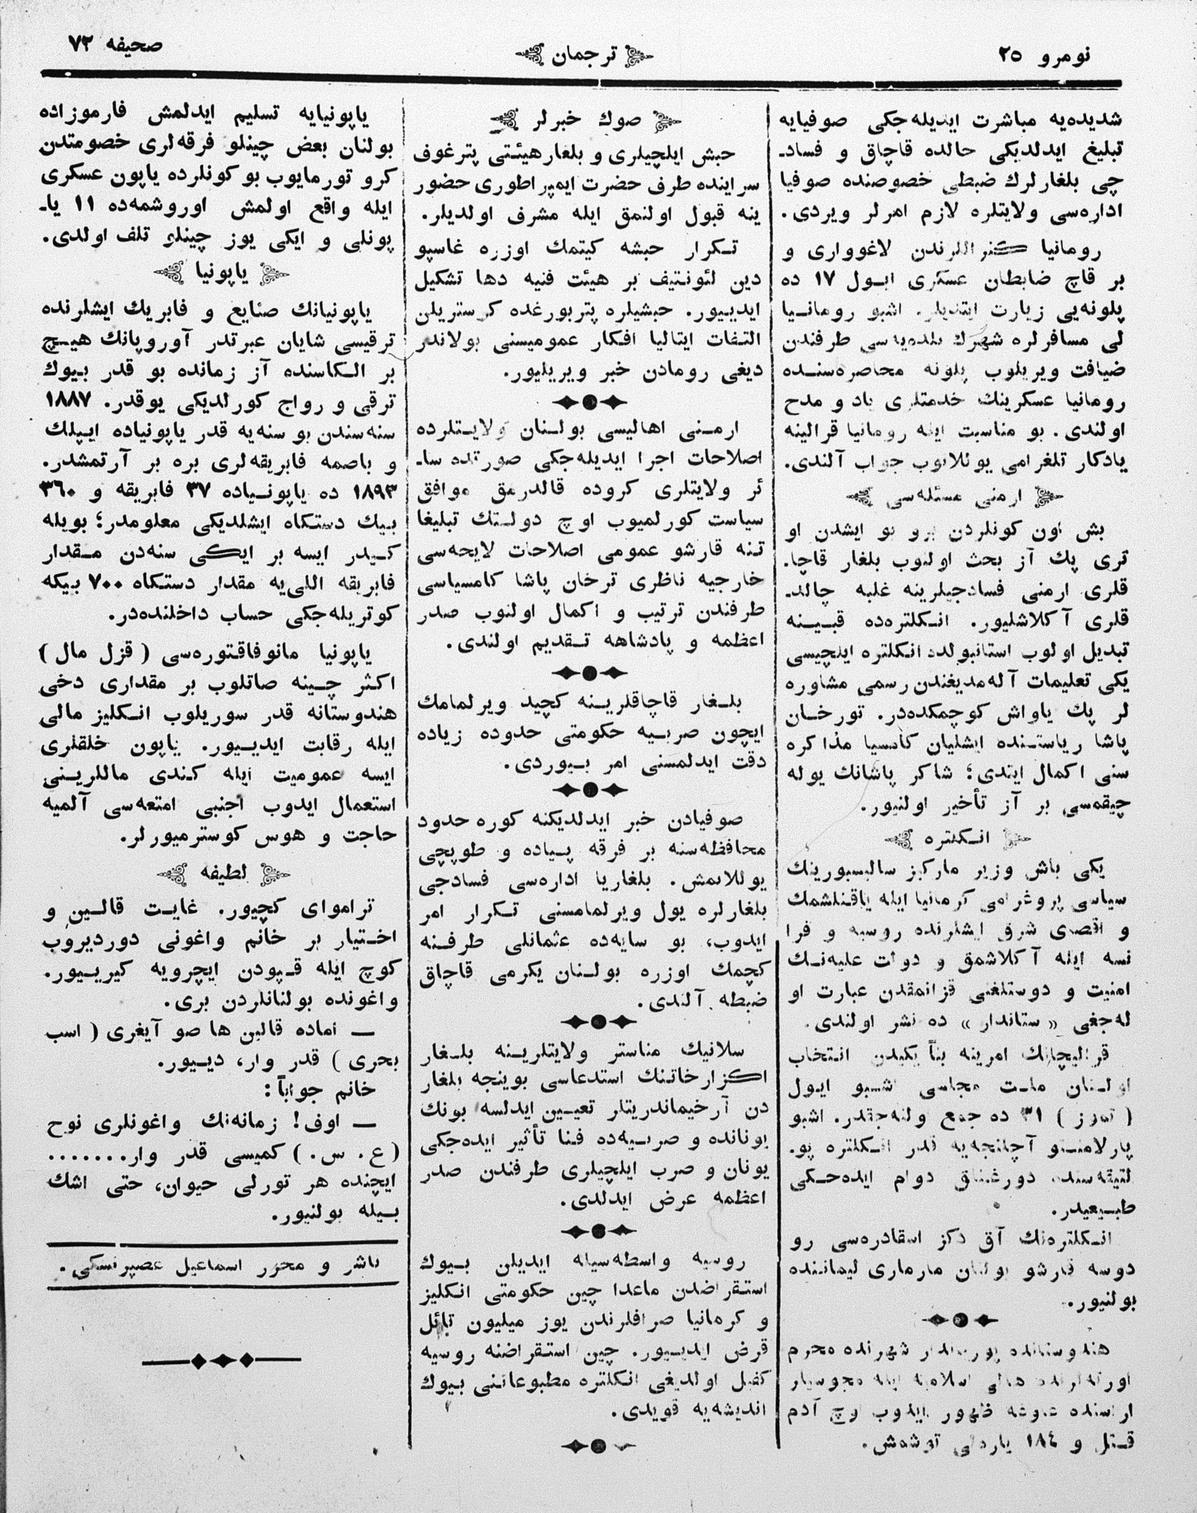 نومرو ٢٥
ترجمان
صحیفه ٧٢
شدیده‌یه مباشرت ایدیله‌جکی صوفیایه
تبلیغ ایدلدیکی حالده قاچاق و فساد۔
چی بلغارلرك ضبطی خصوصنده صوفیا
اداره‌سی ولایتلره لازم امرلر ویردی.
رومانیا جنراللرندن لاغوواری و
بر قاچ ضابطان عسکری ایول ١٧ ده
پلونه‌یی زیارت ایتدیلر. اشبو رومانیا
لی مسافرلره شهرك بلدیه‌سی طرفندن
ضیافت ویریلوب پلونه محاصره‌سنده
رومانیا عسکرینك خدمتلری یاد و مدح
اولندی. بو مناسبت ایله رومانیا قرالینه
یادکار تلغرامی یوللانوب جواب آلندی.
ارمنی مسئله‌سی
بش اون کونلردن برو بو ایشدن او
تری پك آز بحث اولنوب بلغار قاچا۔
قلری ارمنی فسادجیلرینه غلبه چالد۔
قلری آکلاشلیور. انکلتره‌ده قبینه
تبدیل اولوب استانبولده انکلتره ایلچیسی
یکی تعلیمات آله‌مدیغندن رسمی مشاوره
لر پك یاواش کوچمکده‌در. تورخان
پاشا ریاستنده ایشلیان کامسیا مذاکره
سنی اکمال ایتدی؛ شاکر پاشانك یوله
چیقمسی بر آز تأخیر اولنیور.
انکلتره
یکی باش وزیر مارکیز سالیسبورینك
سیاسی پروغرامی کرمانیا ایله یاقنلشمك
و اقصای شرق ایشلرنده روسیه و فرا
نسه ایله آکلاشمق و دولت علیه‌نك
امنیت و دوستلغنی قزانمقدن عبارت او
له‌جغی « ستاندار » ده نشر اولندی.
قرالیچانك امرینه بناً یکیدن انتخاب
اولنان ملت مجلسی اشبو ایول
( تموز ) ٣١ ده جمع اولنه‌جقدر. اشبو
پارلامنتو آچلنجه‌یه قدر انکلتره پو۔
لتیقه‌سنده دورغنلق دوام ایده‌جکی
طبیعیدر.
انکلتره‌نك آق دکز اسقادره‌سی رو
دوسه قارشو بولنان مارماری لیماننده
بولنیور.
هندوستانده پوربندار شهرنده محرم
اورته‌لرنده اهالی اسلامیه ایله مجوسیلر
اراسنده غوغه ظهور ایدوب اوچ آدم
قتل و ١٨٤ یارەلی توشمش.
صوك خبرلر
حبش ایلچیلری و بلغار هیئتی پترغوف
سراینده طرف حضرت ایمپراطوری حضور
ینه قبول اولنمق ایله مشرف اولدیلر.
تکرار حبشه کیتمك اوزره غاسپو
دین لئونتیف بر هیئت فنیه دها تشکیل
ایدیور. حبشیلره پتربورغده کوستریلن
التفات ایتالیا افکار عمومیسنی بولاندر
دیغی رومادن خبر ویریلیور.
ارمنی اهالیسی بولنان ولایتلرده
اصلاحات اجرا ایدیله‌جکی صورتده سا۔
ئر ولایتلری کروده قالدرمق موافق
سیاست کورلمیوب اوچ دولتك تبلیغا
تنه قارشو عمومی اصلاحات لایحه‌سی
خارجیه ناظری ترخان پاشا کامسیاسی
طرفندن ترتیب و اکمال اولنوب صدر
اعظمه و پادشاهه تقدیم اولندی.
بلغار قاچاقلرینه کچید ویرلمامك
ایچون صربیه حکومتی حدوده زیاده
دقت ایدلمسنی امر بیوردی.
صوفیادن خبر ایدلدیکنه کوره حدود
محافظه‌سنه بر فرقه پیاده و طوپچی
یوللانمش. بلغاریا اداره‌سی فسادجی
بلغارلره یول ویرلمامسنی تکرار امر
ایدوب، بو سایه‌ده عثمانلی طرفنه
کچمك اوزره بولنان یکرمی قاچاق
ضبطه آلندی.
سلانیك مناستر ولایتلرینه بلغار
اکزارخاتنك استدعاسی بوینجه بلغار
دن آرخیماندریتلر تعیین ایدلسه بونك
یونانده و صربیه‌ده فنا تأثیر ایده‌جکی
یونان و صرب ایلچیلری طرفندن صدر
اعظمه عرض ایدلدی.
روسیه واسطه‌سیله ایدیلن بیوك
استقراضدن ماعدا چین حکومتی انکلیز
و کرمانیا صرافلرندن یوز میلیون تایئل
قرض ایدیور. چین استقراضنه روسیه
کفیل اولدیغی انکلتره مطبوعاتنی بیوك
اندیشه‌یه قویدی.
یاپونیایه تسلیم ایدلمش فارموزاده
بولنان بعض چینلو فرقه‌لری خصومتدن
کرو تورمایوب بو کونلرده یاپون عسکری
ایله واقع اولمش اوروشمه‌ده ١١ یا۔
پونلی و ایکی یوز چینلو تلف اولدی.
یاپونیا
یاپونیانك صنایع و فابریك ایشلرنده
ترقیسی شایان عبرتدر آوروپانك هیچ
بر الکاسنده آز زمانده بو قدر بیوك
ترقی و رواج کورلدیکی یوقدر. ١٨٨٧
سنه‌سندن بو سنه‌یه قدر یاپونیاده ایپلك
و باصمه فابریقه‌لری بره بر آرتمشدر.
١٨٩٣ ده یاپونیاده ٣٧ فابریقه و ٣٦٠
بیك دستکاه ایشلدیکی معلومدر؛ بویله
کیدر ایسه بر ایکی سنه‌دن مقدار
فابریقه اللی‌یه مقدار دستکاه ٧٠٠ بیکه
کوتریله‌جکی حساب داخلنده‌در.
یاپونیا مانوفاقتوره‌سی ( قزل مال )
اکثر چینه صاتلوب بر مقداری دخی
هندوستانه قدر سوریلوب انکلیز مالی
ایله رقابت ایدیور. یاپون خلقلری
ایسه عمومیت ایله کندی ماللرینی
استعمال ایدوب اجنبی امتعه‌سی آلمیه
حاجت و هوس کوسترمیورلر.
لطیفه
تراموای کچیور. غایت قالین و
اختیار بر خانم واغونی دوردیروب
کوچ ایله قپودن ایچرویه کیریور.
واغونده بولنانلردن بری.
— اماده قالین ها صو آیغری ( اسب
بحری ) قدر وار، دیور.
خانم جواباً:
— اوف! زمانه‌نك واغونلری نوح
(ع. س.) کمیسی قدر وار.......
ایچنده هر تورلی حیوان، حتی اشك
بیله بولنیور.
ناشر و محرر اسماعیل غصپرنسکی.